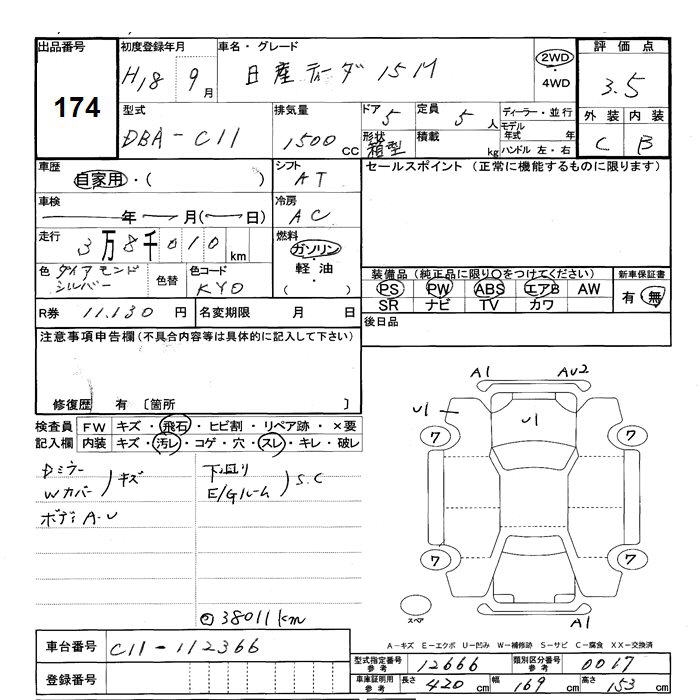 出品番号
174
初度登録年月
H18 9月
車名・グレード
日産ティーダ 15M
2WD
・
4WD
評価点
3.5
外装 内装
C B
型式
DBA-C11
排気量
1500cc
ドア 5
形状 箱型
定員 5人
積載 kg
ディーラー・並行
モデル年式 年
ハンドル 左・右
車歴
自家用・( )
シフト
AT
セールスポイント (正常に機能するものに限ります)
車検
年 月( 日)
冷房
AC
走行
3万8千010km
燃料
ガソリン
・
軽油
・
( )
色 ダイアモンドシルバー
色替
色コード
KY0
装備品(純正品に限り○をつけてください)
PS PW ABS エアB AW
SR ナビ TV カワ
新車保証書
有・無
R券 11.130円
名変期限 月 日
後日品
注意事項申告欄(不具合内容等は具体的に記入して下さい)
修復歴 有 〔箇所 〕
検査員記入欄
FW キズ・飛石・ヒビ割・リペア跡・×要
内装 キズ・汚レ・コゲ・穴・スレ・キレ・破レ
Dミラー
Wカバー
キズ
ボディA-U
下回り
E/Gルーム
S.C
38011km
A1 AU2
U1 U1
7 7
7 7
スペア
A1
A-キズ E-エクボ U-凹み W-補修跡 S-サビ C-腐食 XX-交換済
車台番号 C11-112366
登録番号
型式指定番号参考 12666
類別区分番号参考 0017
車庫証明用参考 長さ 420cm 幅 169cm 高さ 153cm